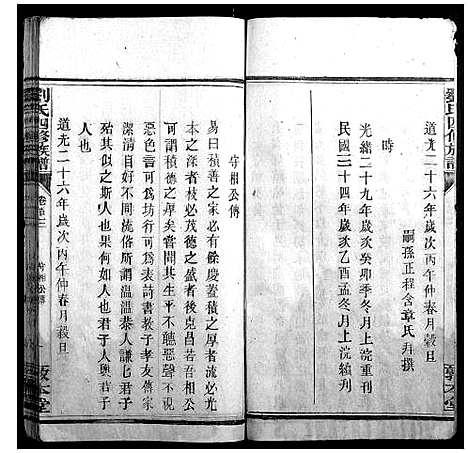 劉氏四修族譜
道光二十六年歲次丙午仲春月穀旦
嗣孫正程含章氏拜撰
時
光緒二十九年歲次癸卯季冬月上浣重刊
民國三十四年歲次乙酉孟冬月上浣續刊
敦本堂
守相公傳
易曰積善之家必有餘慶蓋積之厚者流必光
本之深者枝必茂德之盛者後必克昌若吾相公
可謂積德之厚矣嘗聞其生平不聽惡聲不視
惡色言可為坊行可為表詩書教子孝友傳家
潔清自好不同流俗所謂溫溫恭人謙謙君子
殆其似之斯人也果何如人也君子人與君子
人也
道光二十六年歲次丙午仲春月穀旦
劉氏四修族譜
守相公傳
敦本堂